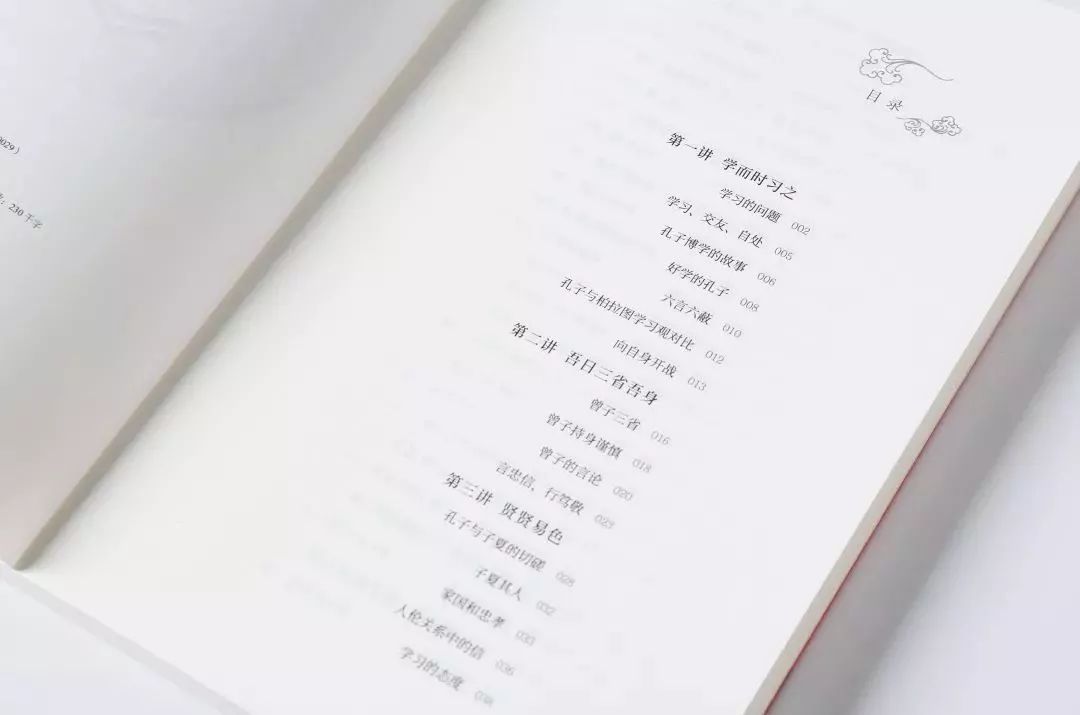 029）
：230 千字
目录
第一讲 学而时习之
学习的问题 002
学习、交友、自处 005
孔子博学的故事 006
好学的孔子 008
六言六蔽 010
孔子与柏拉图学习观对比 012
向自身开战 013
第二讲 吾日三省吾身
曾子三省 016
曾子持身谨慎 018
曾子的言论 020
言忠信、行笃敬 023
第三讲 贤贤易色
孔子与子夏的切磋 028
子夏其人 032
家国和忠孝 033
人伦关系中的信 036
学习的态度 038